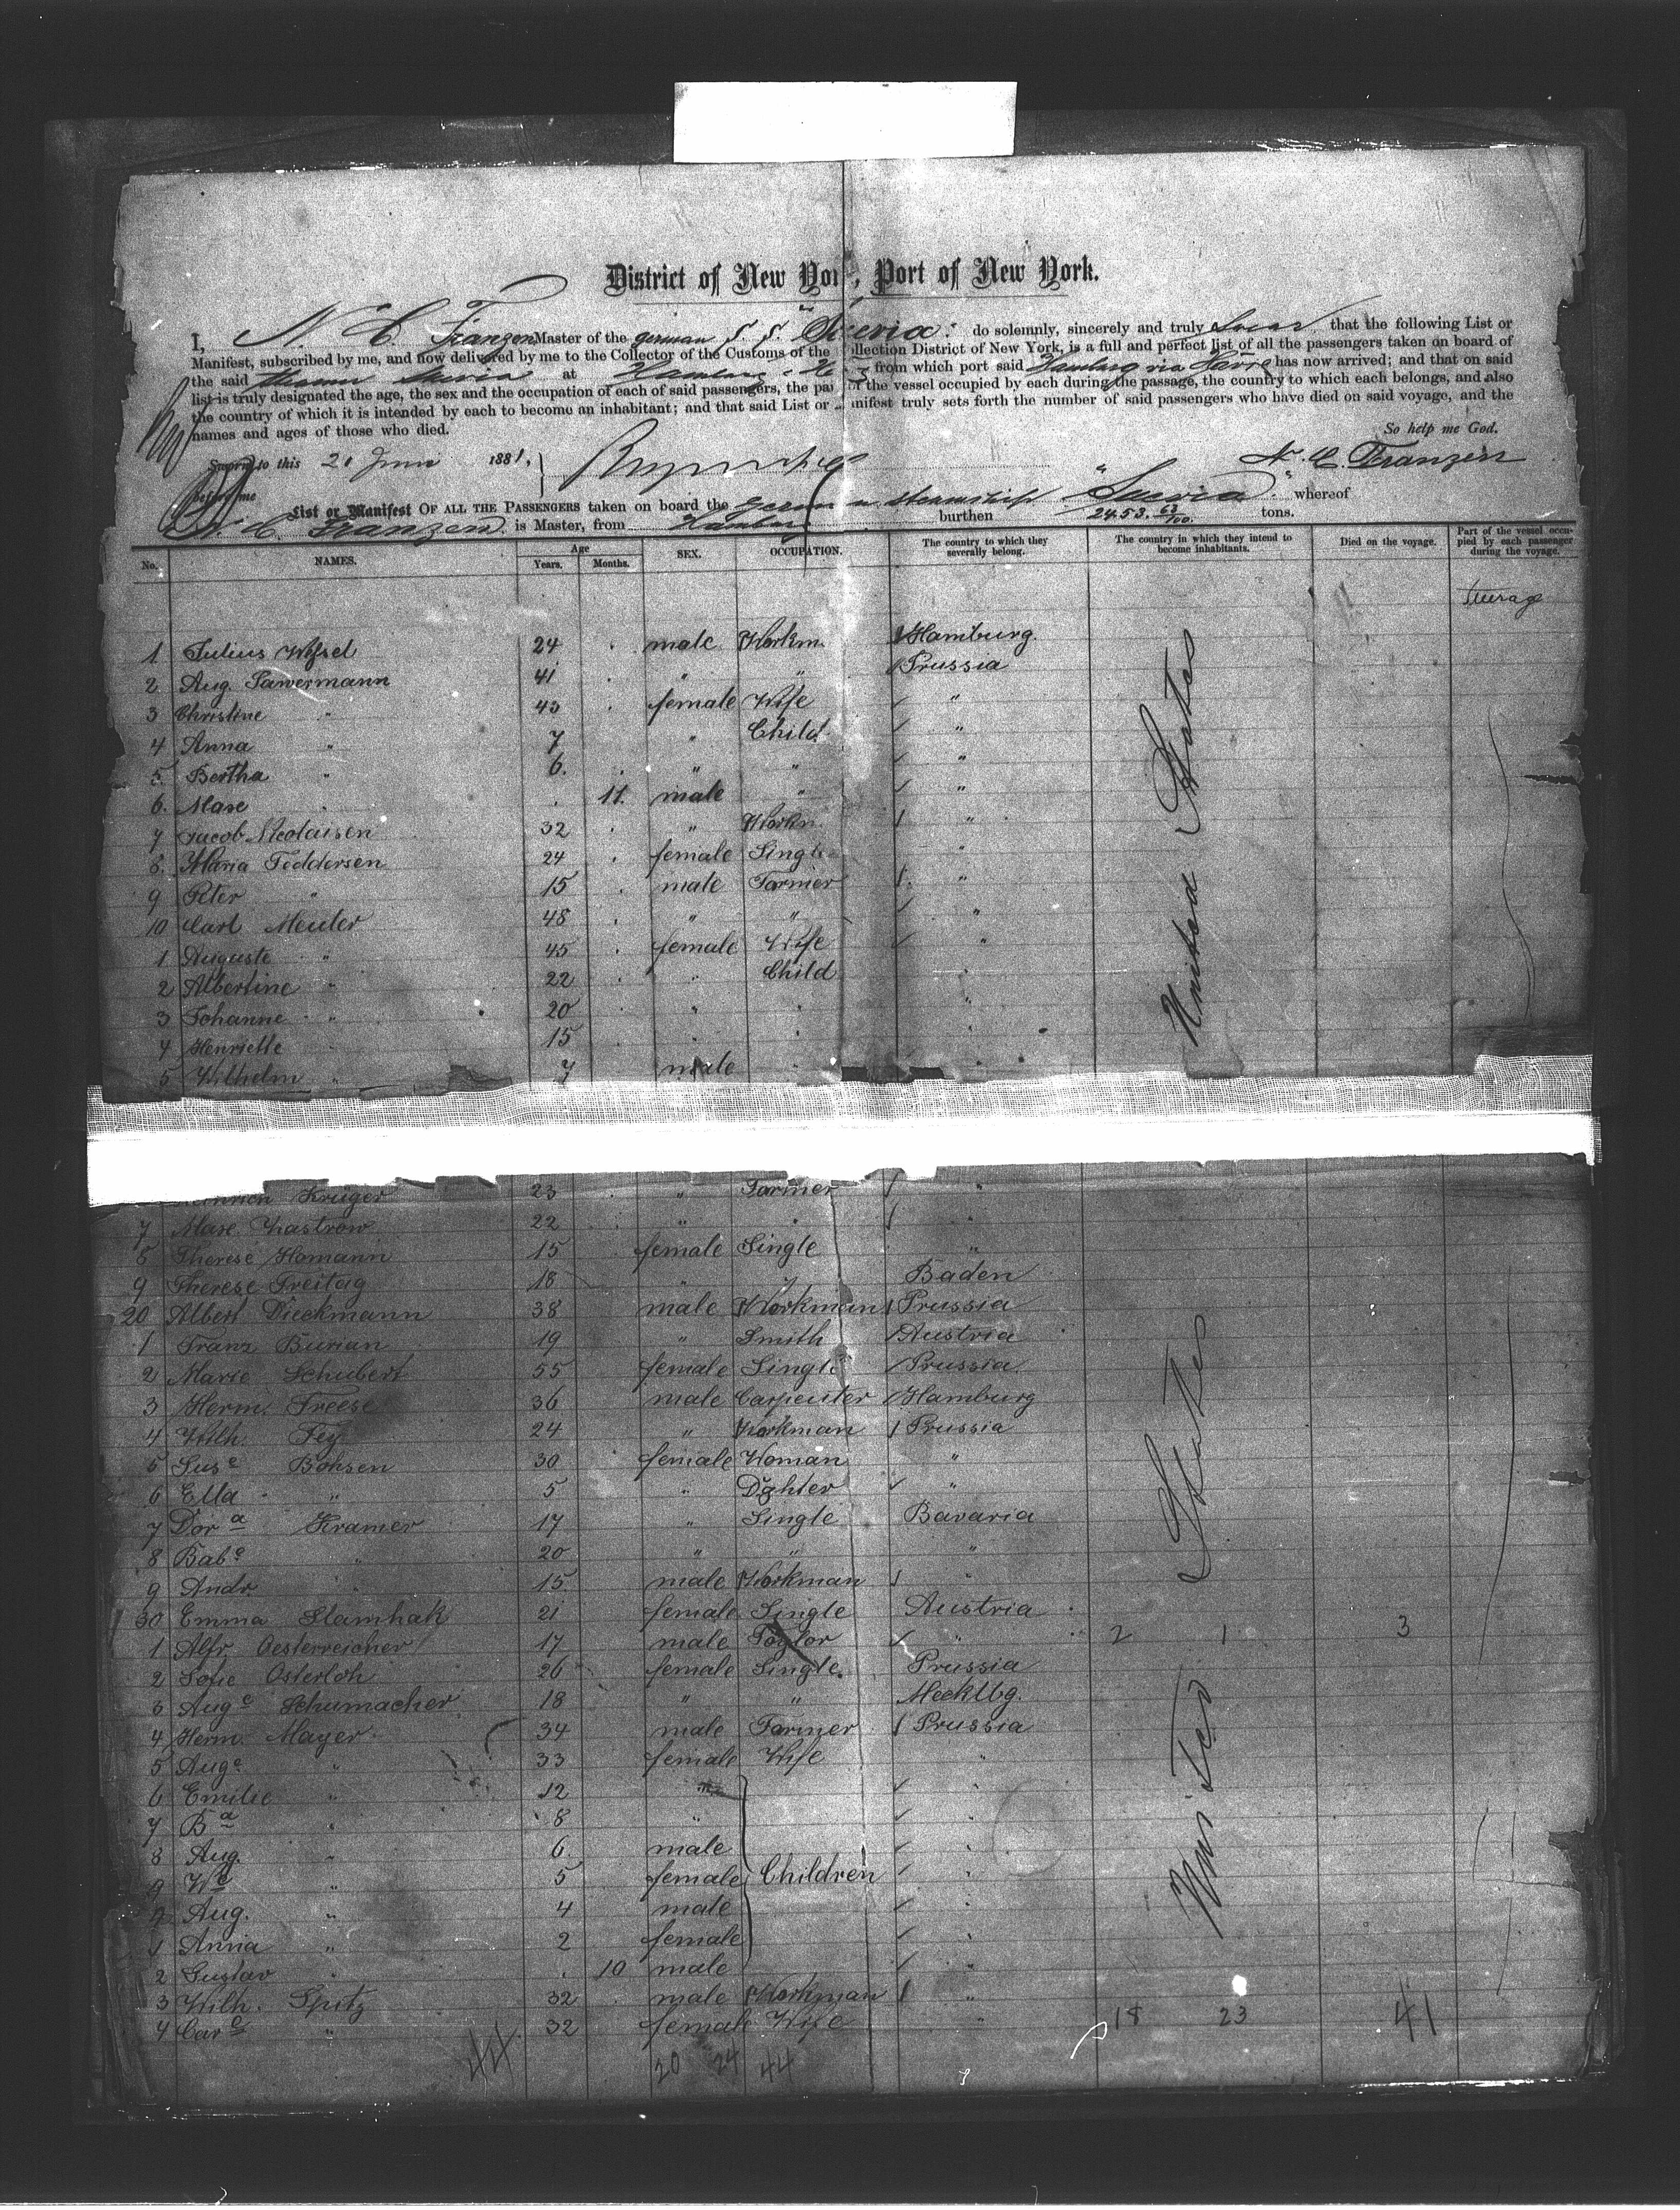 District of New York, Port of New York.
I, N. C. Franzen Master of the german S. S. "Suevia" do solemnly, sincerely and truly swear that the following List or
Manifest, subscribed by me, and now delivered by me to the Collector of the Customs of the Collection District of New York, is a full and perfect list of all the passengers taken on board of
the said steamer Suevia at Hamburg from which port said Hamburg via Havre has now arrived; and that on said
list is truly designated the age, the sex and the occupation of each of said passengers, the part of the vessel occupied by each during the passage, the country to which each belongs, and also
the country of which it is intended by each to become an inhabitant; and that said List or Manifest truly sets forth the number of said passengers who have died on said voyage, and the
names and ages of those who died.
So help me God.
Sworn to this 21 Juni 1881, N. C. Franzen
before me
List or Manifest OF ALL THE PASSENGERS taken on board the german steamship "Suevia" whereof
N. C. Franzen is Master, from Hamburg burthen 2453. 63/100. tons.
No. NAMES. Age Years. Months. SEX. OCCUPATION. The country to which they severally belong. The country in which they intend to become inhabitants. Died on the voyage. Part of the vessel occupied by each passenger during the voyage.
Steerage
1 Julius 24 male Workm. Hamburg.
2 Aug. Sawermann 41 " " Prussia
3 Christine " 43 female Wife "
4 Anna " 7 " Child "
5 Bertha " 6. " " "
6. Maxe " 11. male " "
7 Jacob Nicolaisen 32 " Workm. "
8. Maria Feddersen 24 female Single "
9 Peter " 15 male Farmer "
10 Carl Meuler 48 " " "
1 Auguste " 45 female Wife "
2 Albertine " 22 " Child "
3 Johanne " 20 " " "
4 Henriette " 15 " " "
5 Wilhelm " 7 male " "
United States
Heinrich Krüger 23 " Farmer "
7 Maxe Zastrow 22 " " "
8 Therese Homann 15 female Single "
9 Therese Freitag 18 " " Baden
20 Albert Dieckmann 38 male Workman Prussia
1 Franz Burian 19 " Smith Austria
2 Marie Schubert 55 female Single Prussia
3 Herm. Freese 36 male Carpenter Hamburg
4 Wilh. Fey 24 " Workman Prussia
5 Sus e Bohsen 30 female Woman "
6 Ella " 5 " Dghter "
7 Dor a Kramer 17 " Single Bavaria
8 Bab e " 20 " " "
9 Andr. " 15 male Workman "
30 Emma Slamhak 21 female Single Austria
1 Alfr. Oesterreicher 17 male Taylor " 2 1 3
2 Sofie Osterloh 26 female Single. Prussia
3 Aug e Schumacher 18 " " Mecklbg.
4 Herm. Mayer 34 male Farmer Prussia
5 Aug e " 33 female Wife "
6 Emilie " 12 " "
7 B a " 8 " "
8 Aug. " 6 male "
9 W e " 5 female Children "
Aug. " 4 male "
1 Anna " 2 female "
2 Gustav " 10 male "
3 Wilh. Spitz 32 male Workman "
4 Car e " 32 female Wife " 18 23 41
United States
44 20 24 44